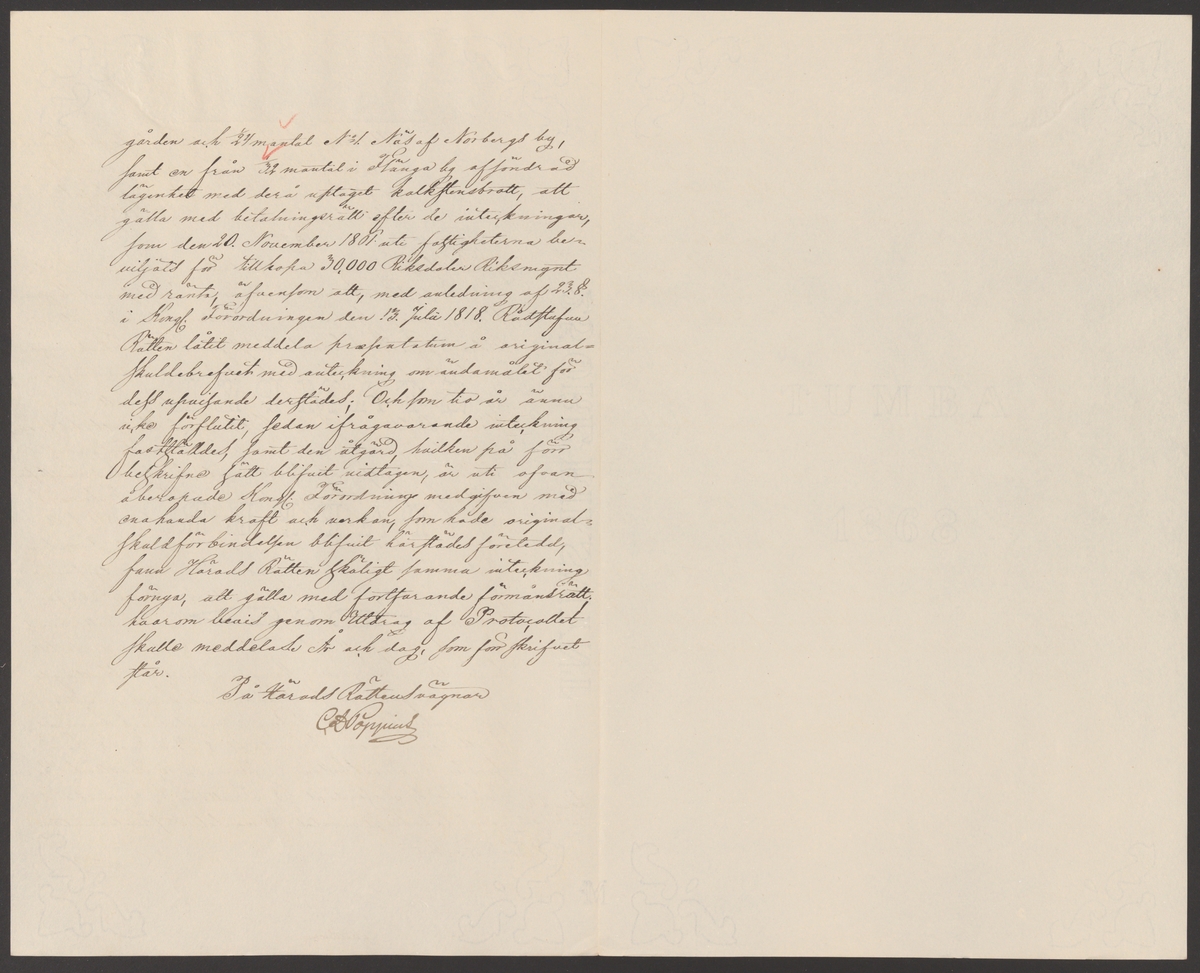 gården och 1/24 mantal N:o 1. Näs af Norbergs by,
samt en från 3/32 mantal i Hånga by afsöndrad
lägenhet med derå uptaget kalkstensbrott, att
gälla med betalningsrätt efter de inteckningar,
som den 20. November 1861 uti fastigheterna be-
viljats för tillhopa 30,000 Riksdaler Riksmynt
med ränta, äfvensom att, med anledning af 23. §.
i Kongl. Förordningen den 13. Julii 1818. Rådstufvu
Rätten låtit meddela præsentatum å original-
skuldebrefvet med anteckning om ändamålet för
dess upvisande derstädes; Och som tio år ännu
icke förflutit, sedan ifrågavarande inteckning
fastställdes, samt den åtgärd, hvilken på förr
beskrifne sätt blifvit vidtagen, är uti ofvan
åberopade Kongl. Förordning medgifven med
enahanda kraft och verkan, som hade original-
skuldförbindelsen blifvit härstädes företedd,
fann Härads Rätten skäligt samma inteckning
förnya, att gälla med fortfarande förmånsrätt,
hvarom bevis genom Utdrag af Protocollet
skulle meddelas År och dag, som förr skrifvet
står.
På Härads Rättens vägnar
C D Poppius